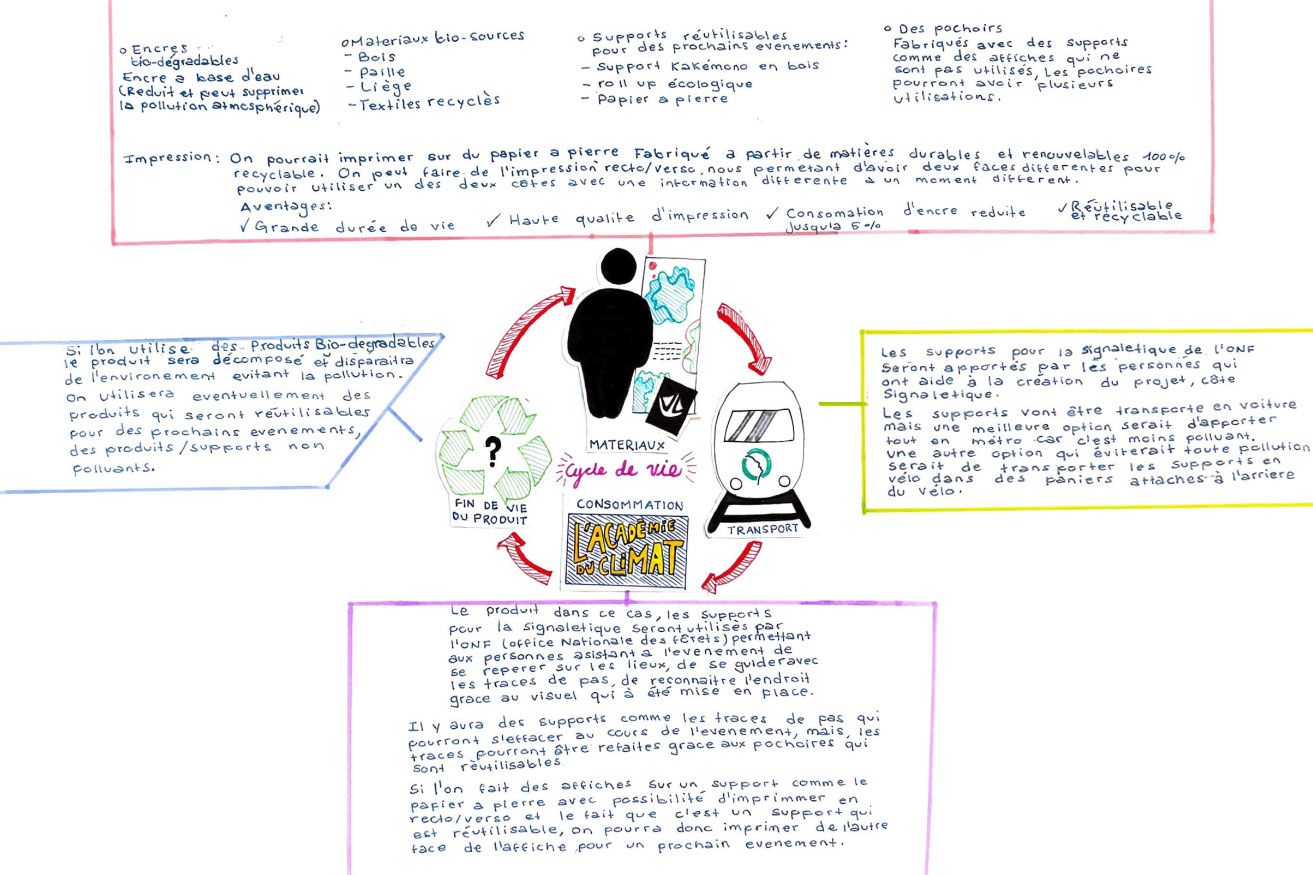 o Encres
bio-dégradables
Encre a base d'eau
(Reduit et peut supprimer
la pollution atmosphérique)
o Materiaux bio-sources
- Bois
- Paille
- Liège
- Textiles recyclès
o Supports réutilisables
pour des prochains evenements:
- Support Kakémono en bois
- roll up écologique
- Papier a pierre
o Des pochoirs
Fabriqués avec des supports
comme des affiches qui ne
sont pas utilisés, Les pochoires
pourront avoir plusieurs
utilisations.
Impression: On pourrait imprimer sur du papier a pierre Fabriqué a partir de matières durables et renouvelables 100%
recyclable. On peut faire de l'impression recto/verso, nous permetant d'avoir deux faces differentes pour
pouvoir utiliser un des deux côtes avec une information differente a un moment different.
Aventages:
✓ Grande durée de vie ✓ Haute qualite d'impression ✓ Consomation d'encre reduite
jusqula 5%
✓ Réutilisable
et recyclable
Si l'on utilise des Produits Bio-degradables
le produit sera décomposé et disparaitra
de l'environement evitant la pollution.
On utilisera eventuellement des
produits qui seront réutilisables
pour des prochains evenements,
des produits/supports non
polluants.
MATERIAUX
Cycle de vie
?
FIN DE VIE
DU PRODUIT
CONSOMMATION
L'ACADÉMIE
DU CLIMAT
TRANSPORT
Les supports pour la signaletique de l'ONF
Seront apportés par les personnes qui
ont aide à la création du projet, côte
Signaletique.
Les supports vont être transporte en voiture
mais une meilleure option serait d'apporter
tout en métro car c'est moins polluant.
Une autre option qui éviterait toute pollution
serait de transporter les supports en
vélo dans des paniers attaches à l'arriere
du vélo.
Le produit dans ce cas, les supports
pour la signaletique seront utilisés par
l'ONF (office Nationale des fôrets) permettant
aux personnes asistant a l'evenement de
se reperer sur les lieux, de se guider avec
les traces de pas, de reconnaitre l'endroit
grace au visuel qui à été mise en place.
Il y aura des supports comme les traces de pas qui
pourront s'effacer au cours de l'evenement, mais, les
traces pourront être refaites grace aux pochoires qui
sont rèutilisables
Si l'on fait des affiches sur un support comme le
papier a pierre avec possibilité d'imprimmer en
recto/verso et le fait que c'est un support qui
est réutilisable, on pourra donc imprimer de l'autre
face de l'affiche pour un prochain evenement.